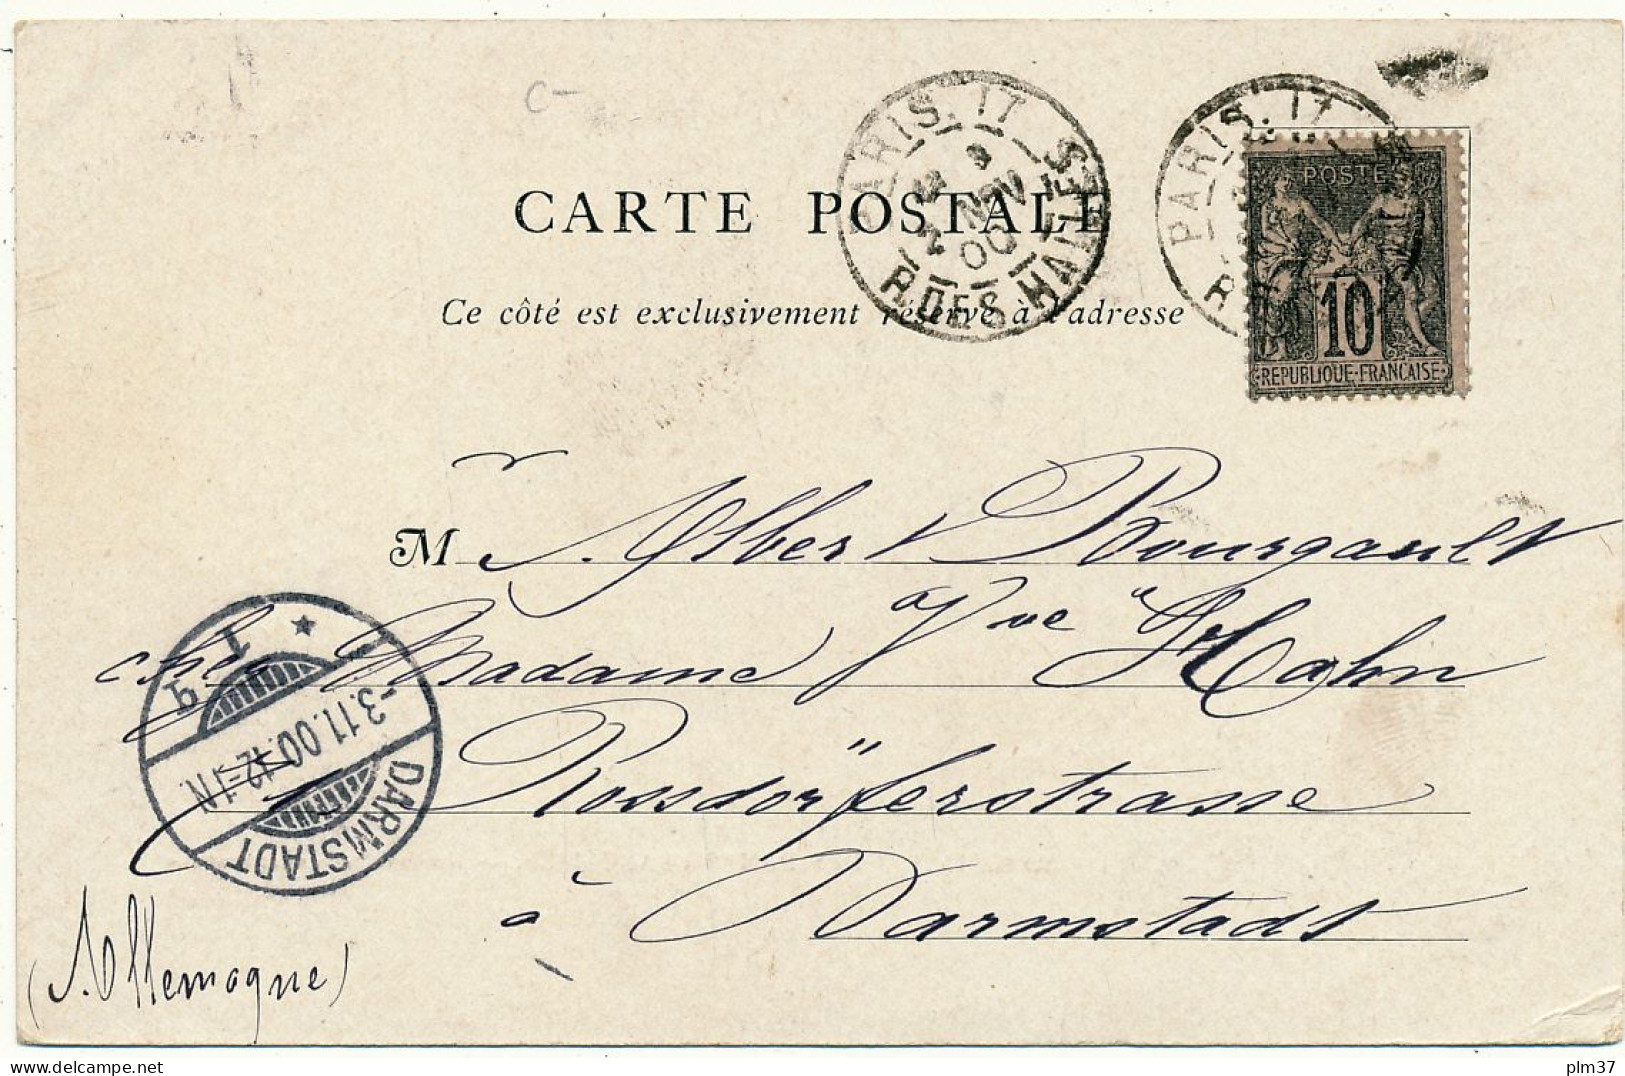 C-
CARTE POSTALE
Ce côté est exclusivement réservé à l'adresse
PARIS. 17
NOV
00
R. DES HALLES
PARIS. 17
R
POSTE
10
REPUBLIQUE·FRANCAISE
M Albert Bourgault
chez Madame Vve Hahn
Rossdörferstrasse
à Darmstadt
(Allemagne)
DARMSTADT
-3.11.00.12-1N.
* 1
plm37
www.delcampe.net